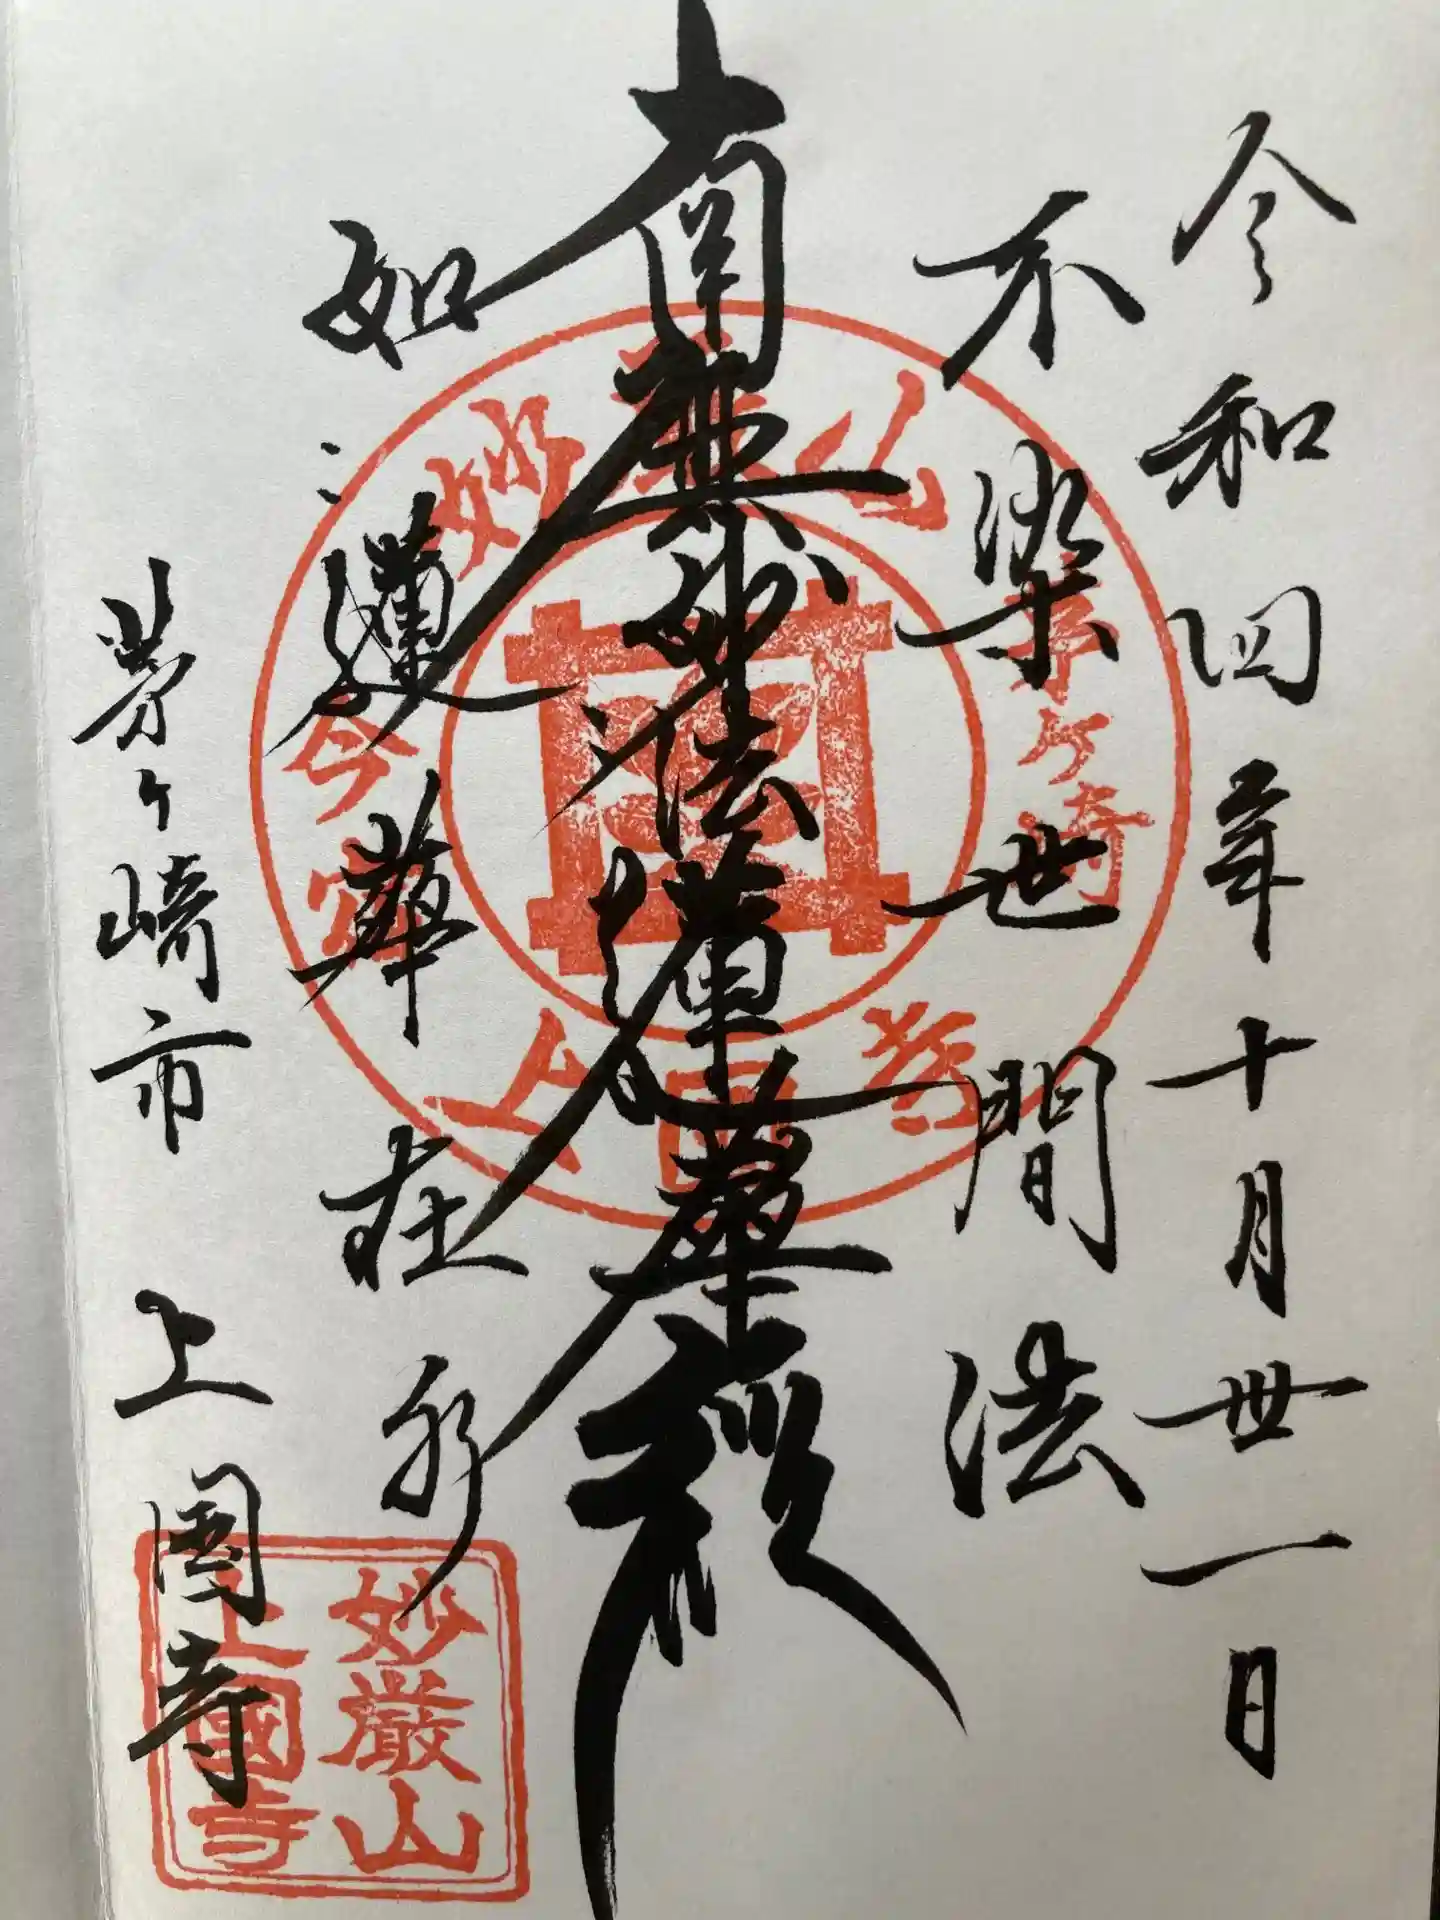 令和四年十月丗一日
不染世間法
南無妙法蓮華経
如蓮華在水
茅ヶ崎市 上國寺
妙厳山
茅ヶ崎
今宿
上国寺
妙厳山
上國寺